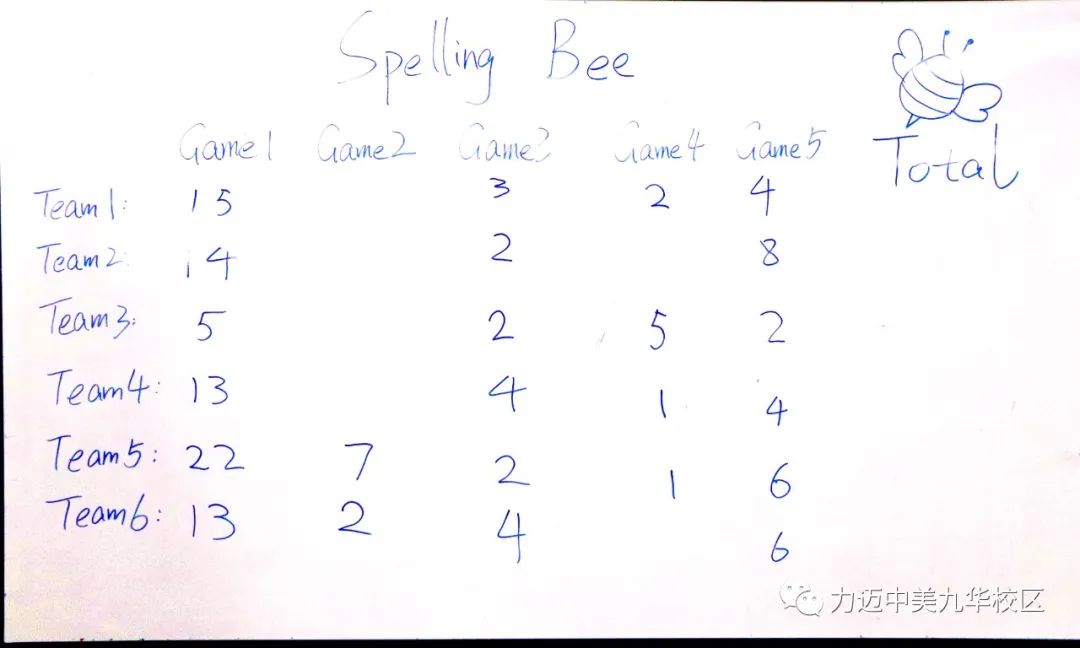 Spelling Bee
Game1 Game2 Game3 Game4 Game5 Total
Team1: 15 3 2 4
Team2: 14 2 8
Team3: 5 2 5 2
Team4: 13 4 1 4
Team5: 22 7 2 1 6
Team6: 13 2 4 6
力迈中美九华校区